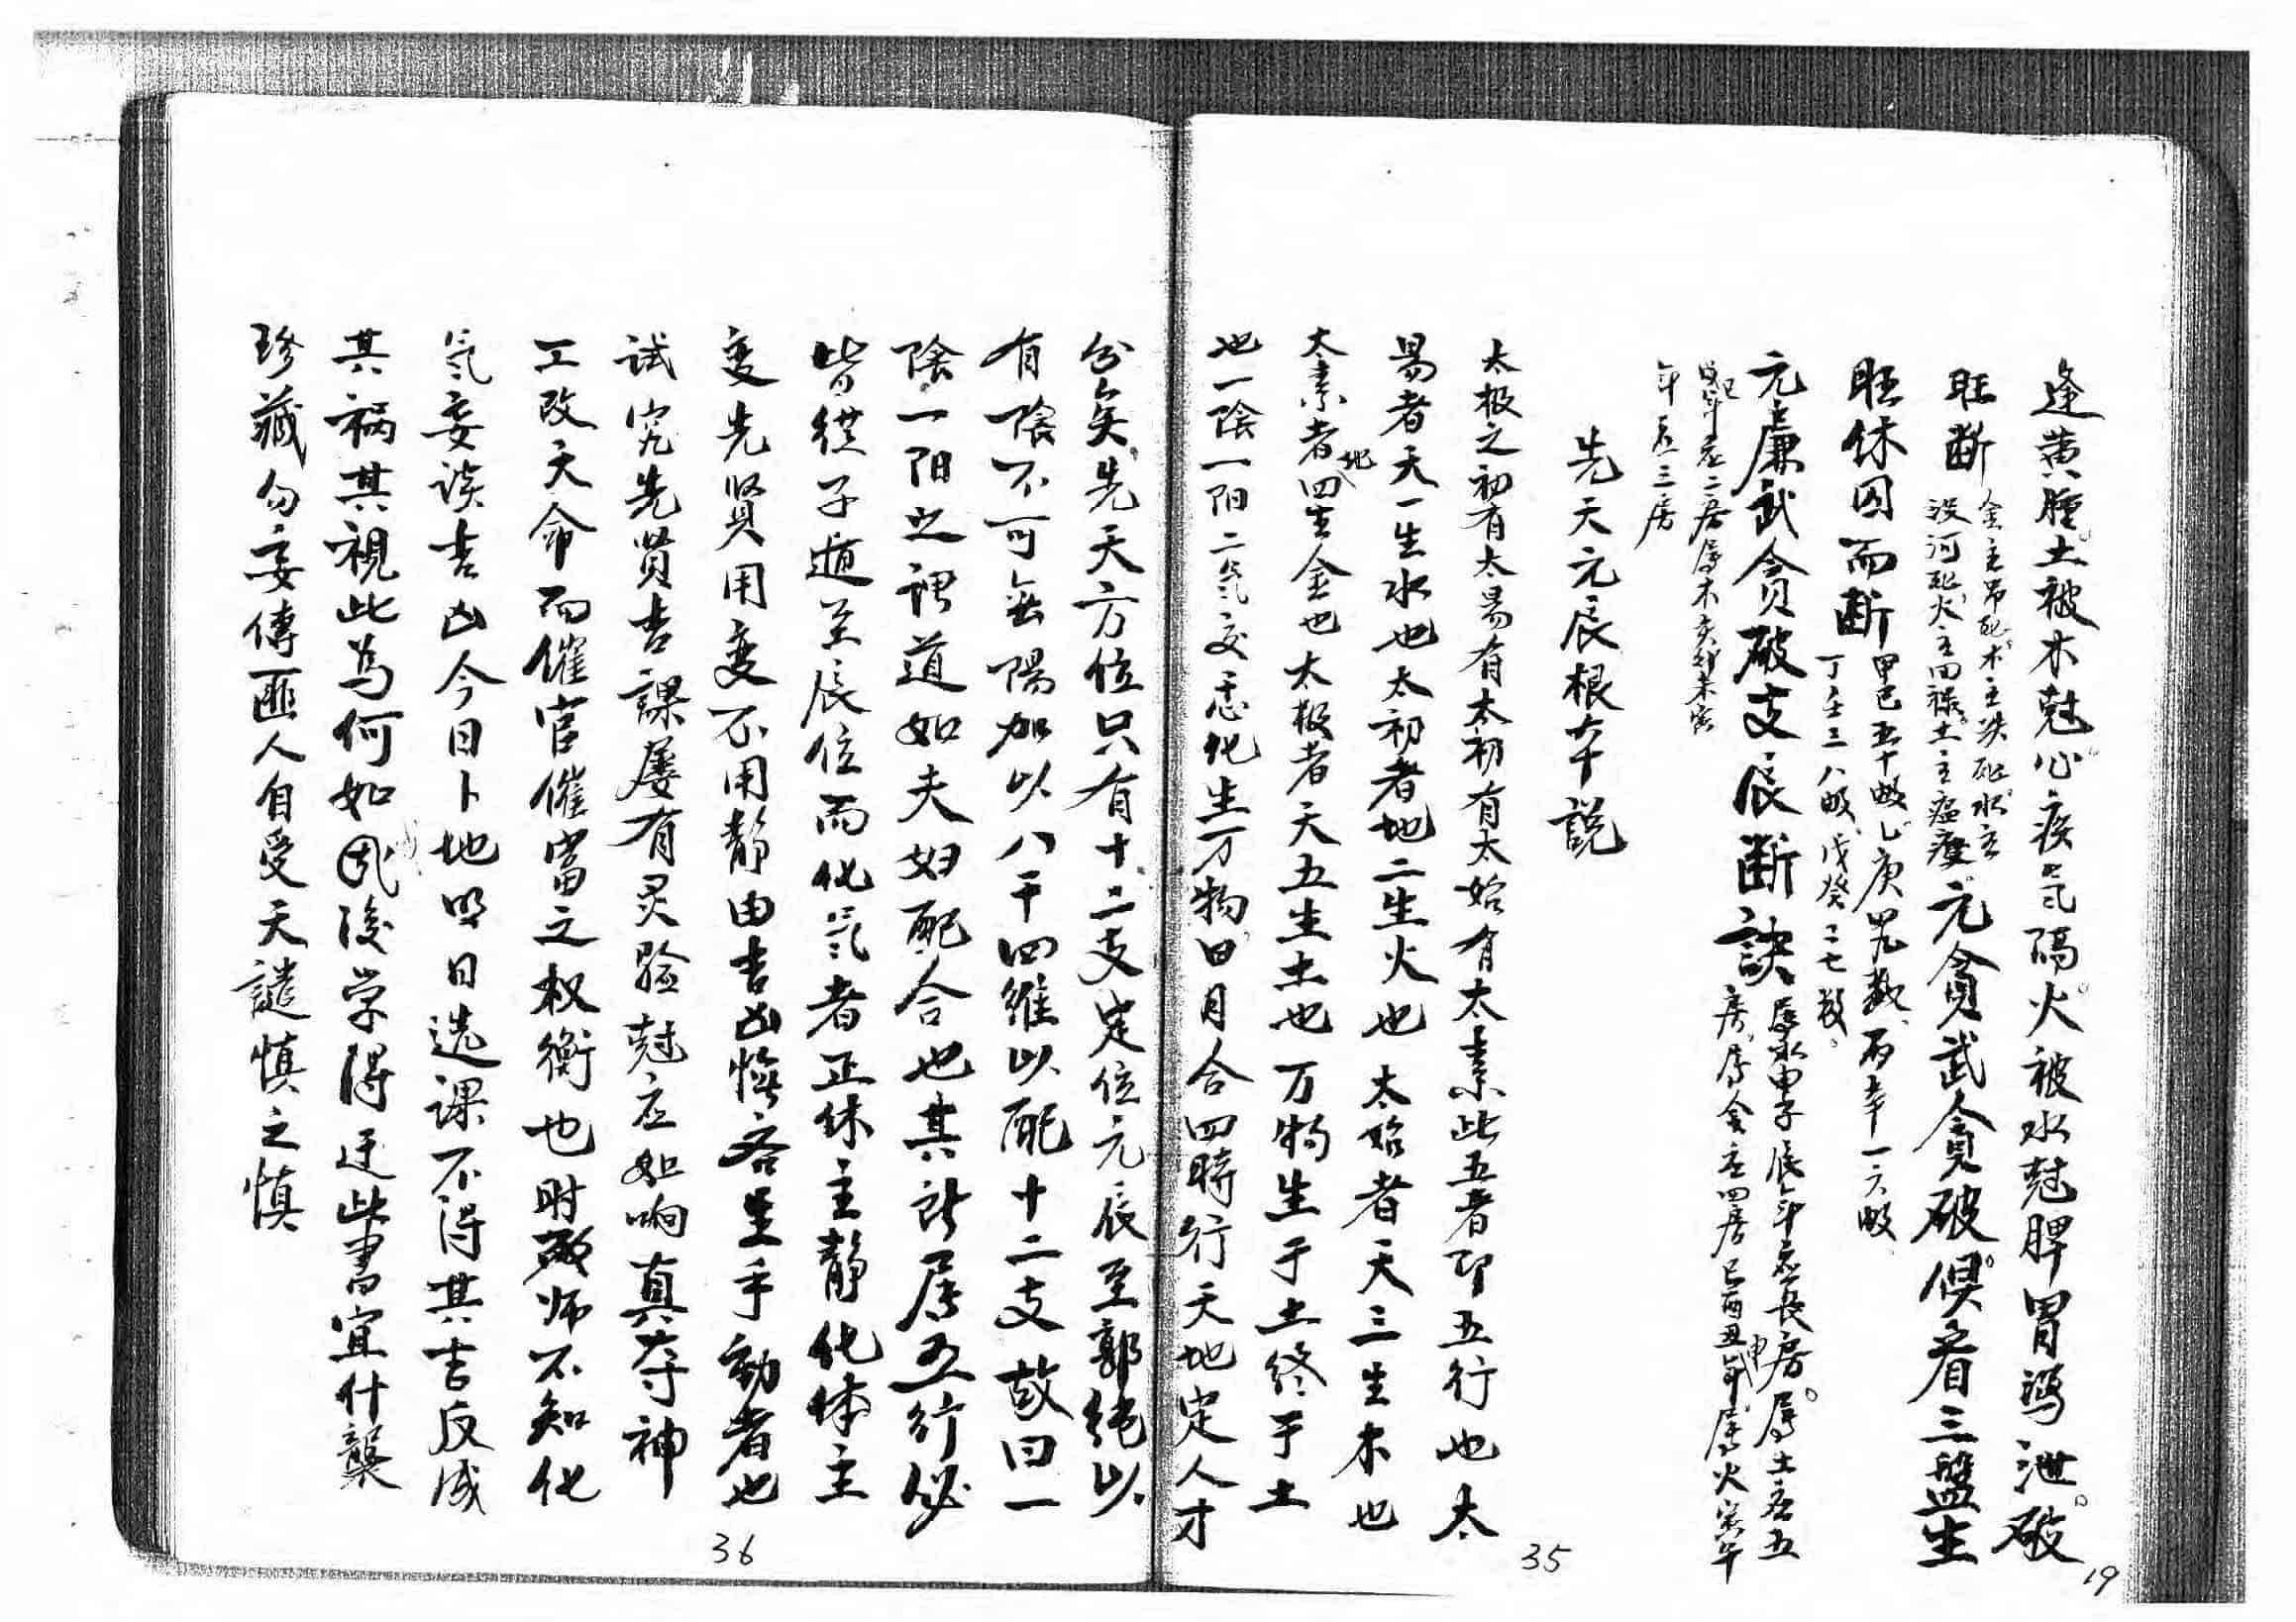 逢黄腫。土被木尅心疾气隔。火被水尅脾胃瀉泄。破
旺断
金主吊死。木主跌死。水主
没河死。火主回禄。土主瘟疫。
元貪武貪破俱看三盤生
旺休囚而断
甲己五十数、乙庚四九数、丙辛一六数、
丁壬三八数、戊癸二七数、
元廉武貪破支辰断訣
属水申子辰年应長房。属土应五
房、属金应四房巳酉丑年、属火寅午
戌年应二房属木亥卯未
年应三房
先天元辰根本説
太极之初有太易有太初有太始有太素此五者即五行也太
易者天一生水也太初者地二生火也太始者天三生木也
太素者地四生金也太极者天五生土也万物生于土終于土
也一陰一阳二气交感化生万物日月合四時行天地定人才
分矣先天方位只有十二支定位元辰至郭純以
有陰不可無陽加以八干四維以配十二支故曰一
陰一阳之謂道如夫妇配合也其所居五行必
皆從子遁至辰位而化气者正体主靜化体主
变先贤用变不用静由吉凶悔吝生乎動者也
试究先贤吉課屡有灵验尅应如响真夺神
工改天命而催官催富之权衡也时师不知化
气妄谈吉凶今日卜地明日选课不得其吉反成
其祸其視此為何如哉後学得逢此書宜什襲
珍藏勿妄傳匪人自受天譴慎之慎
35
36
19